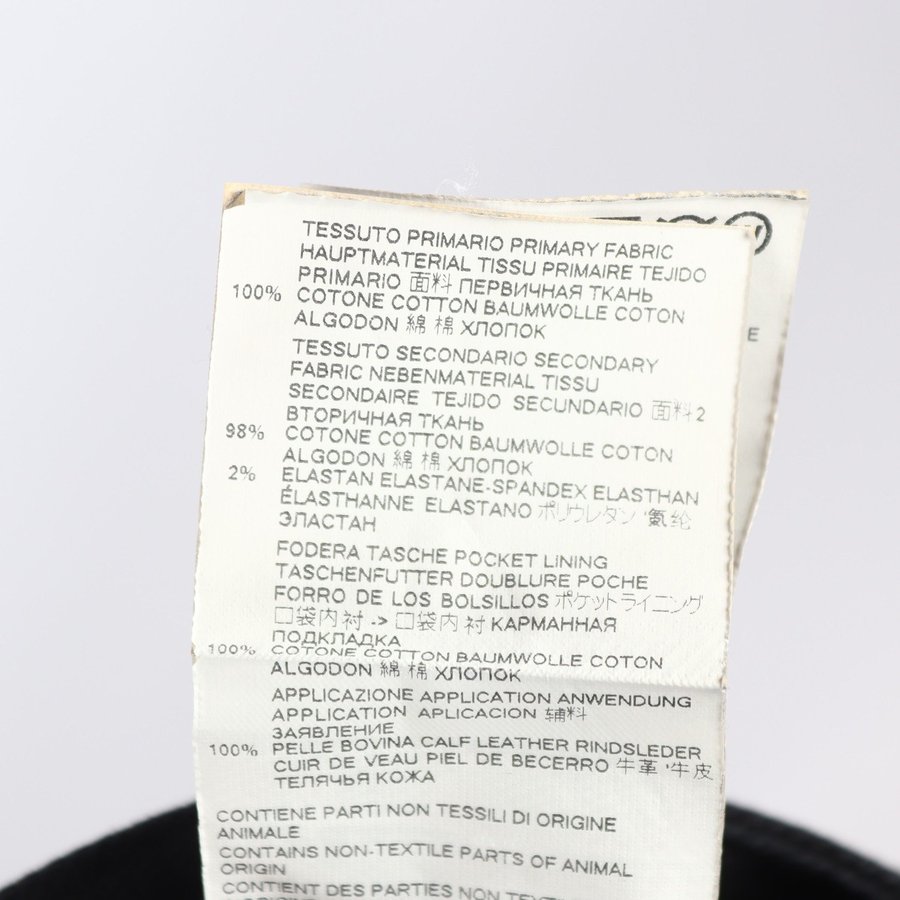 TESSUTO PRIMARIO PRIMARY FABRIC
HAUPTMATERIAL TISSU PRIMAIRE TEJIDO
PRIMARIO 面料 ПЕРВИЧНАЯ ТКАНЬ
100% COTONE COTTON BAUMWOLLE COTON
ALGODON 綿 棉 ХЛОПОК
TESSUTO SECONDARIO SECONDARY
FABRIC NEBENMATERIAL TISSU
SECONDAIRE TEJIDO SECUNDARIO 面料2
ВТОРИЧНАЯ ТКАНЬ
98% COTONE COTTON BAUMWOLLE COTON
ALGODON 綿 棉 ХЛОПОК
2% ELASTAN ELASTANE-SPANDEX ELASTHAN
ÉLASTHANNE ELASTANO ポリウレタン '氨纶
ЭЛАСТАН
FODERA TASCHE POCKET LINING
TASCHENFUTTER DOUBLURE POCHE
FORRO DE LOS BOLSILLOS ポケットライニング
口袋内衬 -> 口袋内衬 КАРМАННАЯ
ПОДКЛАДКА
100% COTONE COTTON BAUMWOLLE COTON
ALGODON 綿 棉 ХЛОПОК
APPLICAZIONE APPLICATION ANWENDUNG
APPLICATION APLICACION 辅料
ЗАЯВЛЕНИЕ
100% PELLE BOVINA CALF LEATHER RINDSLEDER
CUIR DE VEAU PIEL DE BECERRO 牛革 '牛皮
ТЕЛЯЧЬЯ КОЖА
CONTIENE PARTI NON TESSILI DI ORIGINE
ANIMALE
CONTAINS NON-TEXTILE PARTS OF ANIMAL
ORIGIN
CONTIENT DES PARTIES NON
E